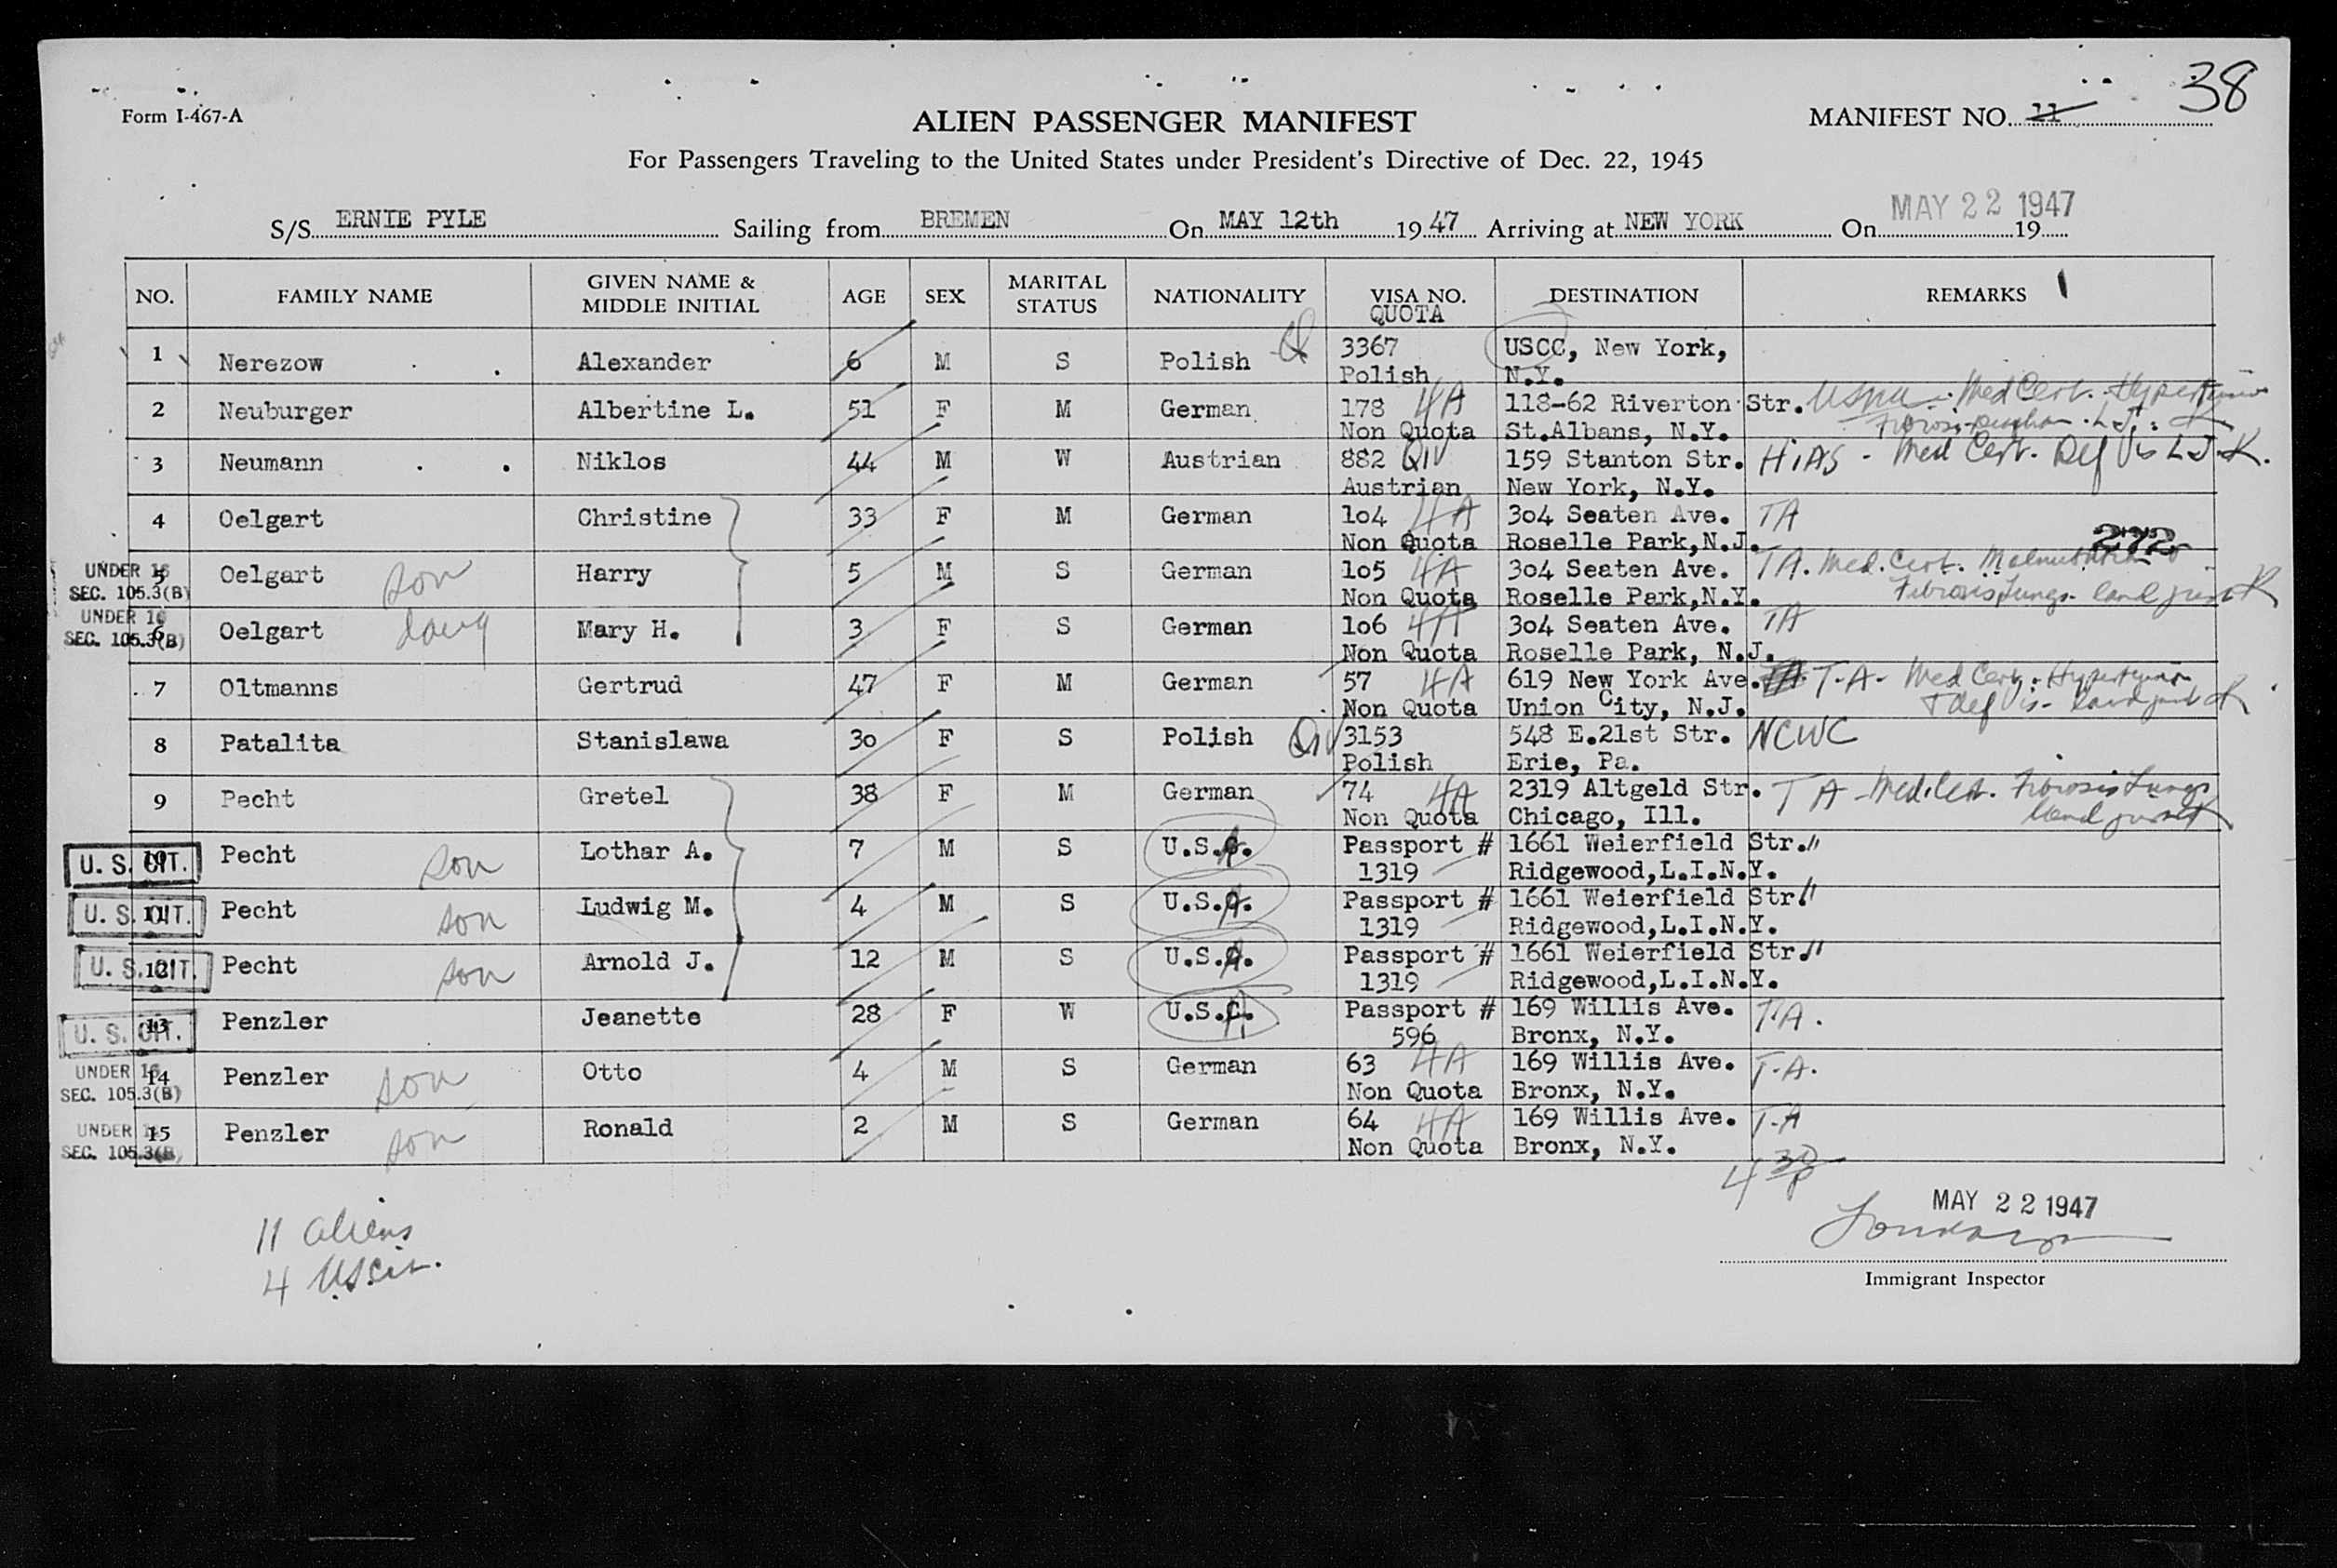 38
Form I-467-A
ALIEN PASSENGER MANIFEST
MANIFEST NO. 11
For Passengers Traveling to the United States under President's Directive of Dec. 22, 1945
MAY 22 1947
S/S ERNIE PYLE Sailing from BREMEN On MAY 12th 1947 Arriving at NEW YORK On 19
NO. FAMILY NAME GIVEN NAME & MIDDLE INITIAL AGE SEX MARITAL STATUS NATIONALITY VISA NO. QUOTA DESTINATION REMARKS
1 Nerezow Alexander 6 M S Polish 3367 USCC, New York,
Polish N.Y.
2 Neuburger Albertine L. 51 F M German 178 4A 118-62 Riverton Str. Med Cert.
Non Quota St.Albans, N.Y.
3 Neumann Niklos 44 M W Austrian 882 QIV 159 Stanton Str. HIAS - Med Cert. Def Vis L J. K.
Austrian New York, N.Y.
4 Oelgart Christine 33 F M German 104 4A 304 Seaten Ave. TA
Non Quota Roselle Park,N.J.
272
UNDER 16
SEC. 105.3(B)
5 Oelgart son Harry 5 M S German 105 4A 304 Seaten Ave. TA. Med. Cert.
Non Quota Roselle Park,N.Y. Fibrosis Lungs - land
UNDER 16
SEC. 105.3(B)
6 Oelgart daug Mary H. 3 F S German 106 4A 304 Seaten Ave. TA
Non Quota Roselle Park, N.J.
7 Oltmanns Gertrud 47 F M German 57 4A 619 New York Ave. T-A- Med Cert.
Non Quota Union City, N.J. def Vis-
8 Patalita Stanislawa 30 F S Polish QIV 3153 548 E.21st Str. NCWC
Polish Erie, Pa.
9 Pecht Gretel 38 F M German 74 4A 2319 Altgeld Str. TA - Med. Cert. Fibrosis Lungs
Non Quota Chicago, Ill. land
U. S. CIT.
10 Pecht son Lothar A. 7 M S U.S.A. Passport # 1661 Weierfield Str. "
1319 Ridgewood,L.I.N.Y.
U. S. CIT.
11 Pecht son Ludwig M. 4 M S U.S.A. Passport # 1661 Weierfield Str. "
1319 Ridgewood,L.I.N.Y.
U. S. CIT.
12 Pecht son Arnold J. 12 M S U.S.A. Passport # 1661 Weierfield Str. "
1319 Ridgewood,L.I.N.Y.
U. S. CIT.
13 Penzler Jeanette 28 F W U.S.A. Passport # 169 Willis Ave. T.A.
596 Bronx, N.Y.
UNDER 16
SEC. 105.3(B)
14 Penzler son Otto 4 M S German 63 4A 169 Willis Ave. T.A.
Non Quota Bronx, N.Y.
UNDER 16
SEC. 105.3(B)
15 Penzler son Ronald 2 M S German 64 4A 169 Willis Ave. T-A
Non Quota Bronx, N.Y.
11 aliens
4 UScit.
MAY 22 1947
Immigrant Inspector